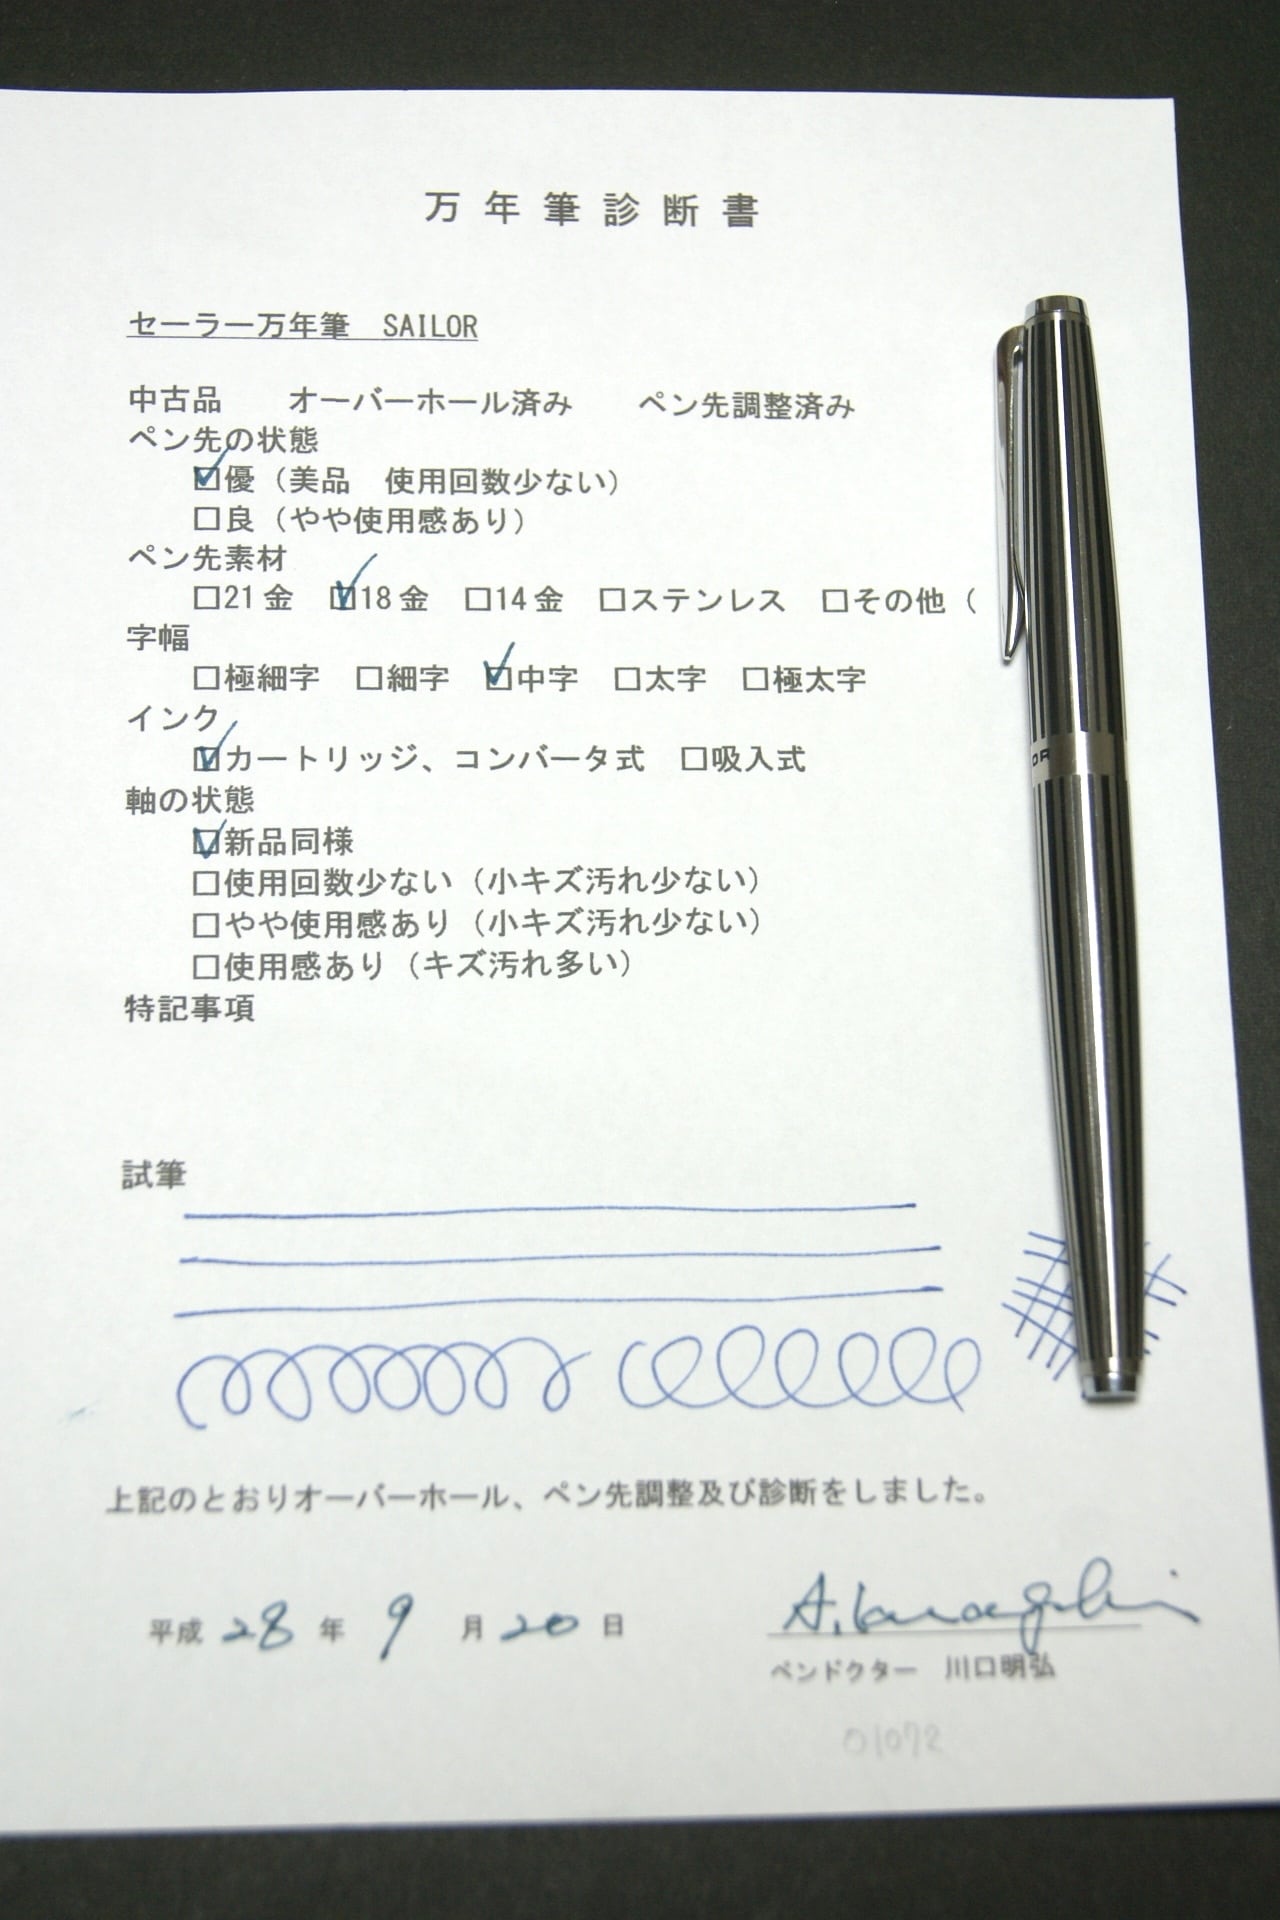 万年筆診断書
セーラー万年筆　SAILOR
中古品　　オーバーホール済み　　ペン先調整済み
ペン先の状態
☑優（美品　使用回数少ない）
□良（やや使用感あり）
ペン先素材
□21金　☑18金　□14金　□ステンレス　□その他（
字幅
□極細字　□細字　☑中字　□太字　□極太字
インク
☑カートリッジ、コンバータ式　□吸入式
軸の状態
☑新品同様
□使用回数少ない（小キズ汚れ少ない）
□やや使用感あり（小キズ汚れ少ない）
□使用感あり（キズ汚れ多い）
特記事項
試筆
上記のとおりオーバーホール、ペン先調整及び診断をしました。
平成28年9月20日
A.Kawaguchi
ペンドクター　川口明弘
01072
OR